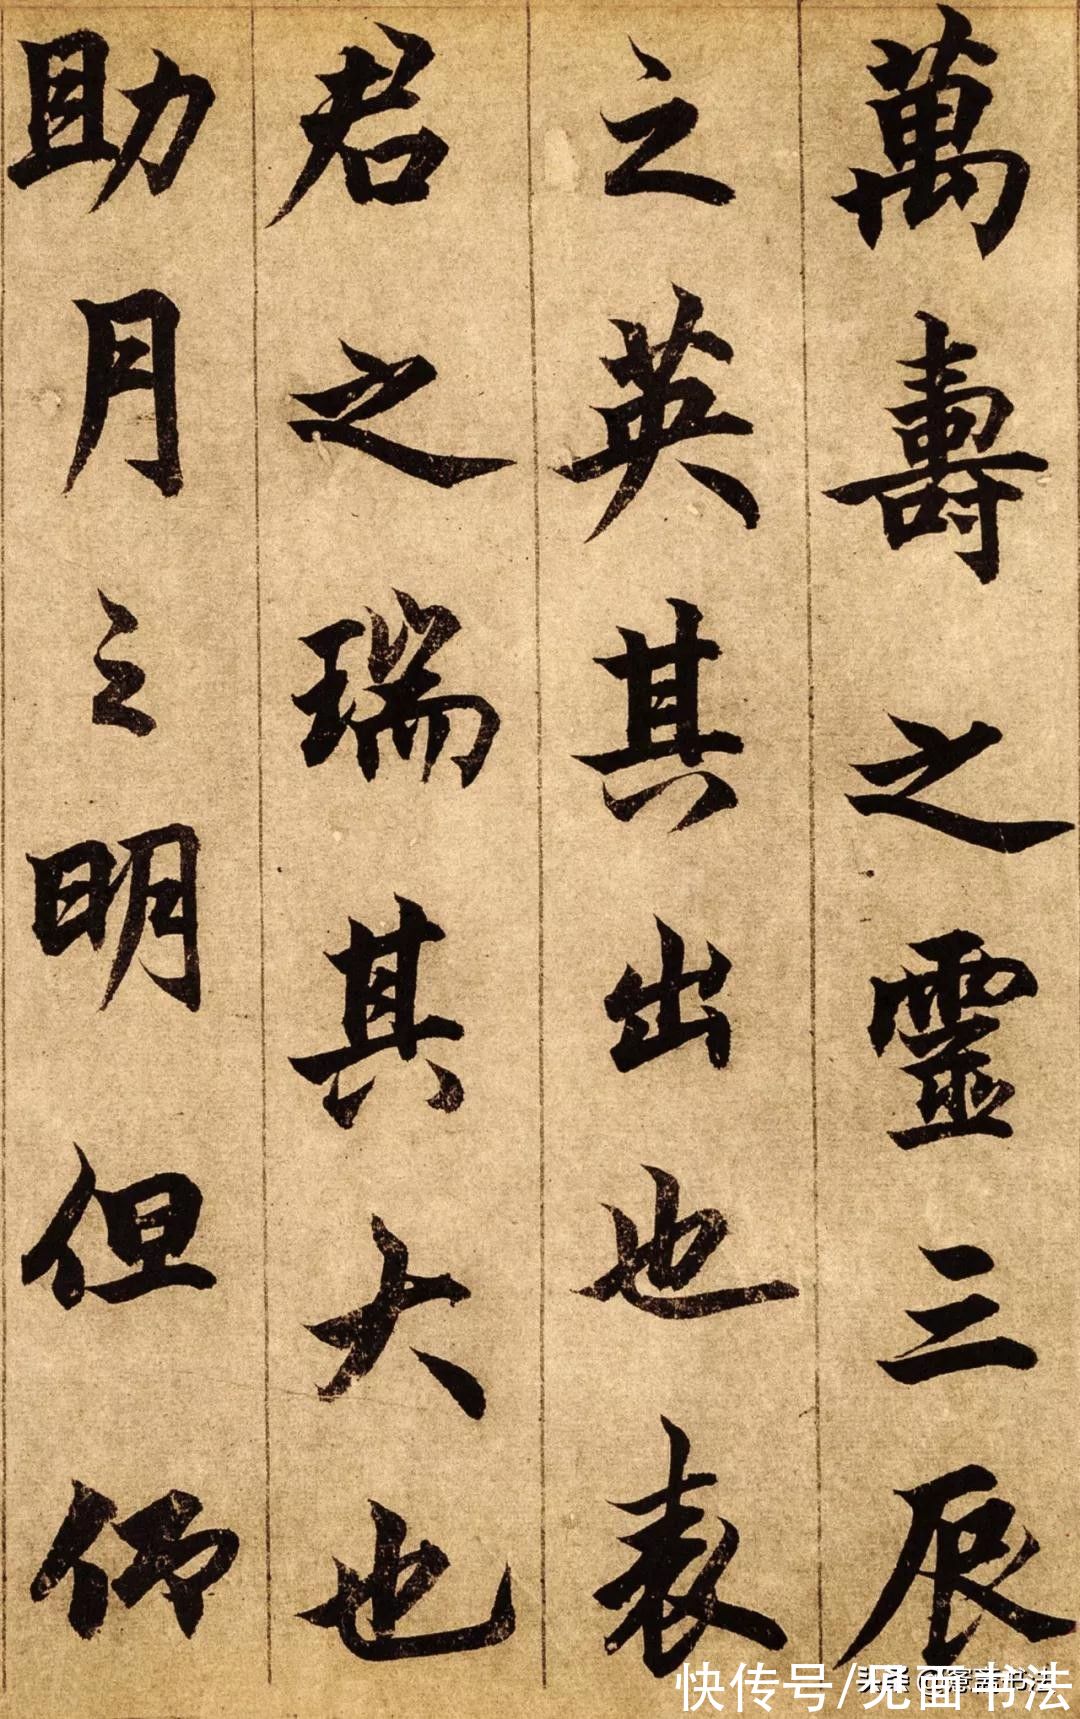 萬壽之靈三辰
之英其出也表
君之瑞其大也
助月之明但仰
快传号/见面书法